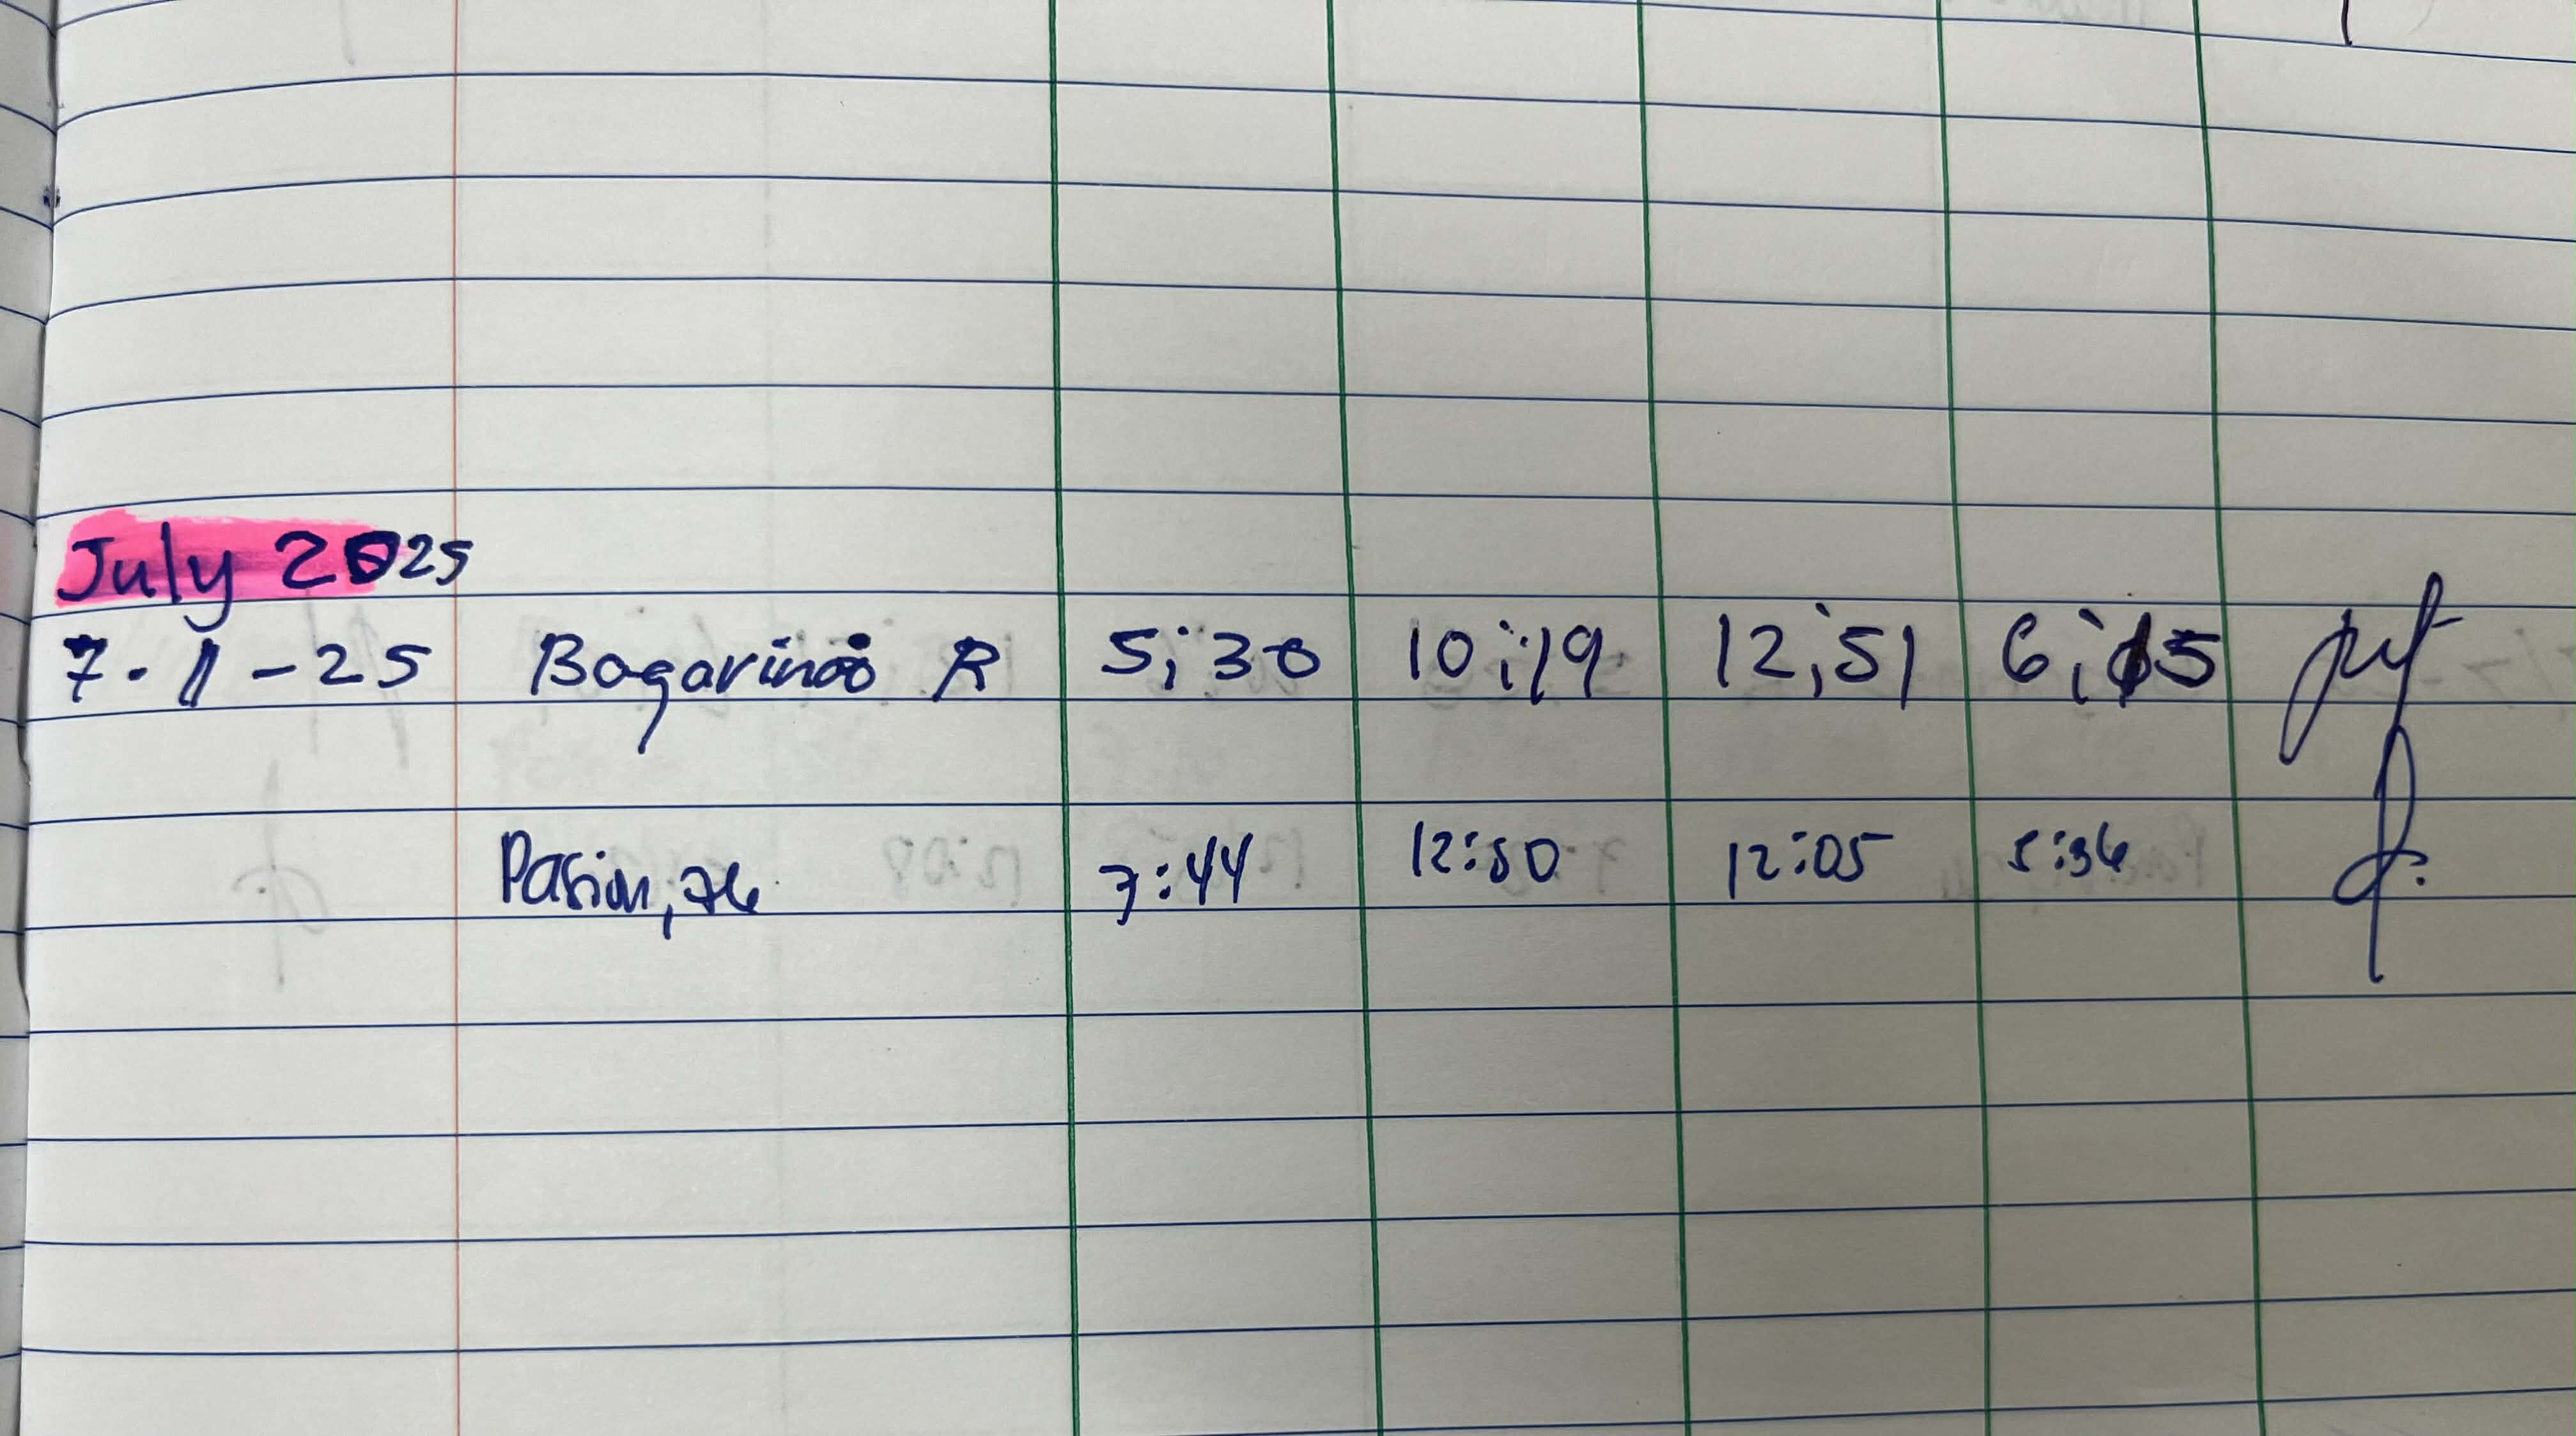 July 2025
7-1-25 Bagarinao R 5;30 10;19 12;51 6;15
Pasion, 7:44 12:50 12:05 5:36